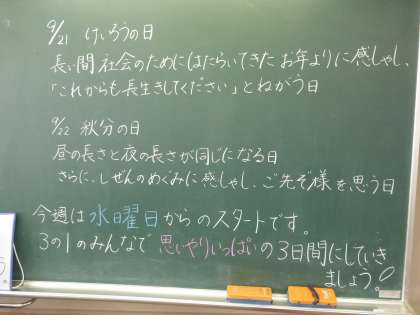 9/21 けいろうの日
長い間社会のためにはたらいてきたお年よりに感しゃし、
「これからも長生きしてください」とねがう日
9/22 秋分の日
昼の長さと夜の長さが同じになる日
さらに、しぜんのめぐみに感しゃし、ご先ぞ様を思う日
今週は水曜日からのスタートです。
3の1のみんなで思いやりいっぱいの3日間にしていき
ましょう。